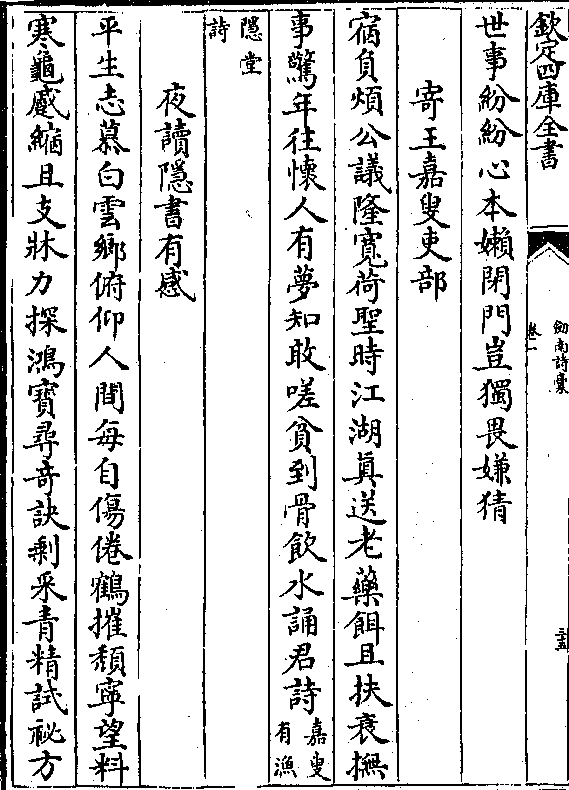 欽定四庫全書
劒南詩稾
卷一
世事紛紛心本嬾閉門豈獨畏嫌猜
寄王嘉叟吏部
宿負煩公議隆寛荷聖時江湖眞送老藥餌且扶衰撫
事驚年往懷人有夢知敢嗟貧到骨飲水誦君詩嘉叟
有漁
隱堂
詩
夜讀隱書有感
平生志慕白雲鄉俯仰人間每自傷倦鶴摧頽寧望料
寒龜藏縮且支牀力探鴻寶尋奇訣剰采青精試祕方